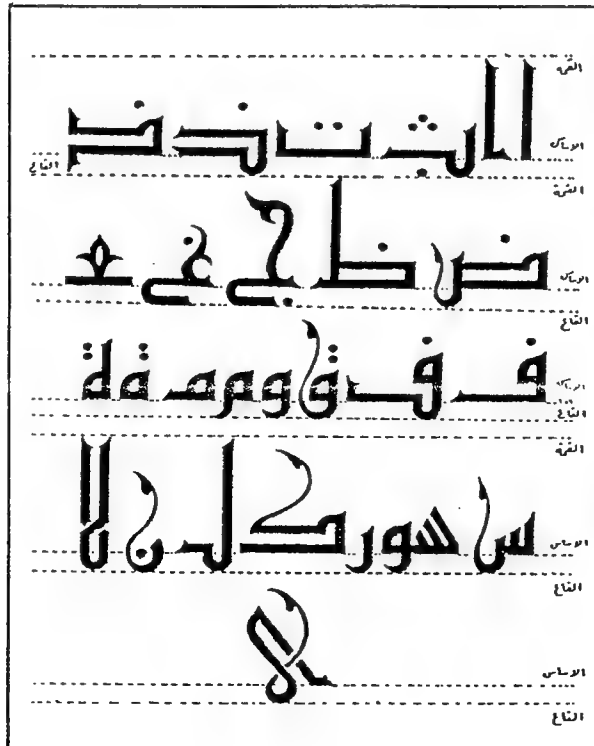 القمة
ا ا لبث ت ذ ذ
الاساس
القاع
القمة
ض ظ ج غ
الاساس
القاع
ف ف ق و م م ة لة
الاساس
القاع
القمة
س س و ر ك ل ن لا
الاساس
القاع
الاساس
القاع